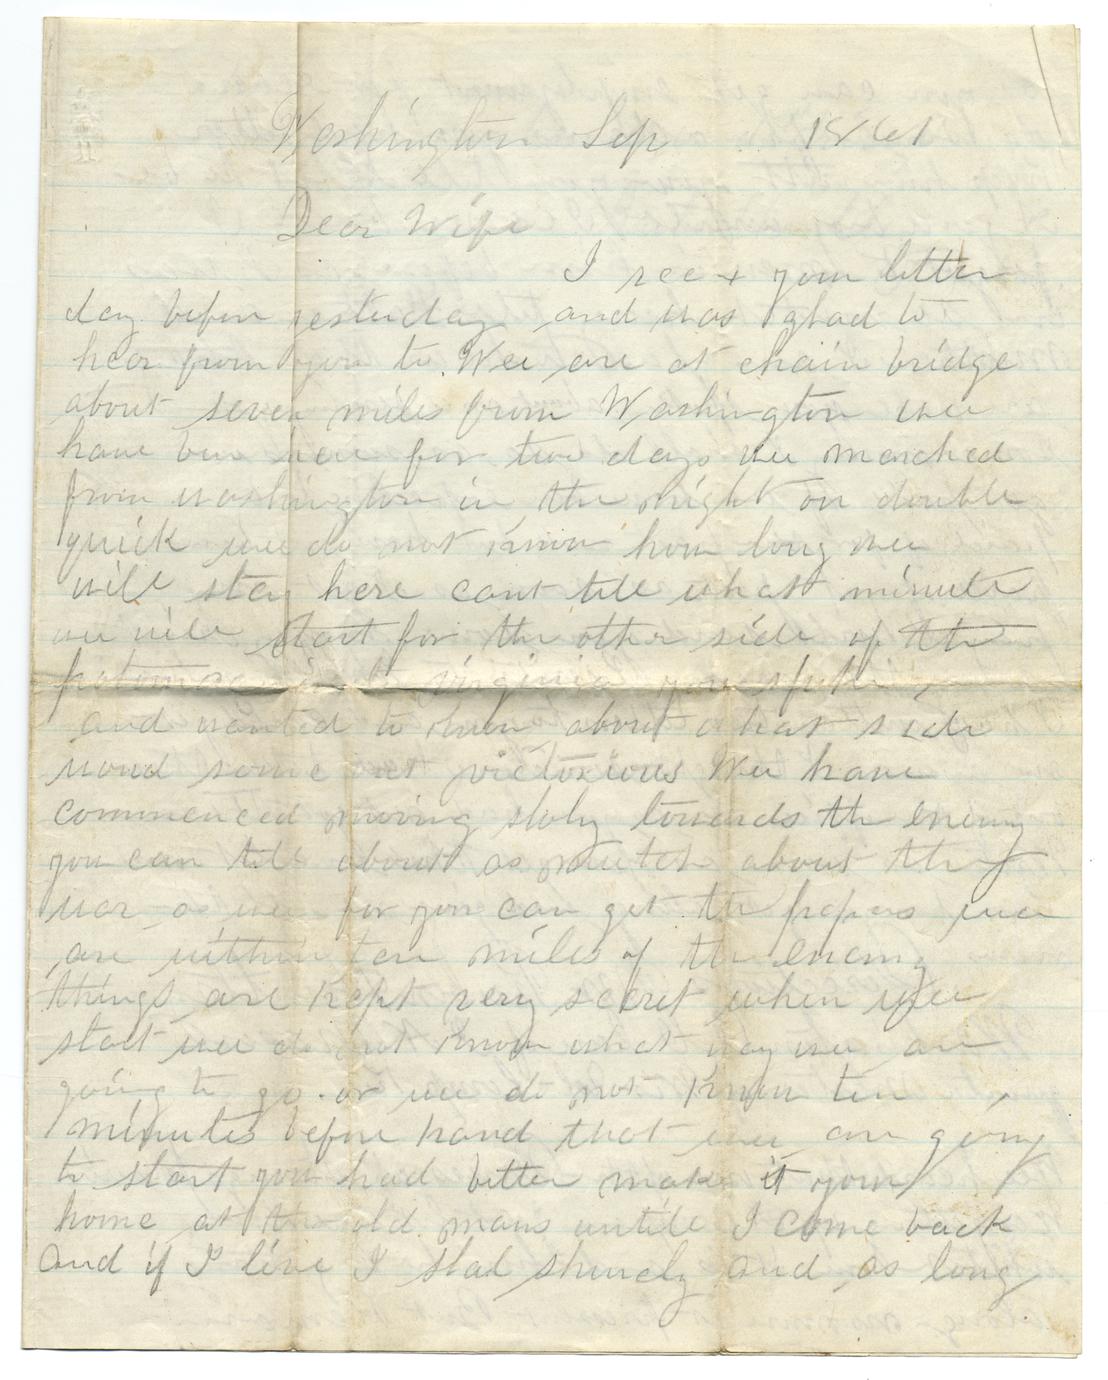 Washington Sep 1861
Dear Wife
I rec+ your letter
day before yesterday and was glad to
hear from you to. Wee are at chain bridge
about seven miles from Washington wee
have ben here for two days wee marched
from washington in the night on double
quick wee do not know how long wee
will stay here cant tell what minute
we will start for the other side of the
potomac into virginia you spoke
and wanted to know about what side
woud some out victorious Wee have
commenced moving sloly towards the enemy
you can tell about as mutch about the
war as wee for you can get the papers wee
are within ten miles of the enemy
things are kept very secret when wee
start wee do not know what way wee are
going to go. or wee do not know ten
minutes before hand that wee are going
to start you had better make it your
home at the old mans untill I come back
and if I live I shal shurely and as long